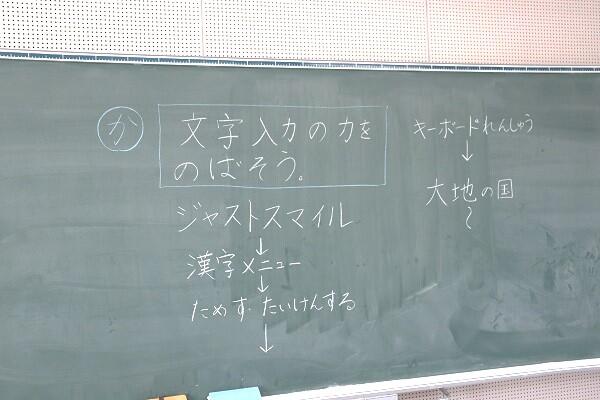 か
文字入力の力を
のばそう。
ジャストスマイル
↓
漢字メニュー
↓
ためす・たいけんする
↓
キーボードれんしゅう
↓
大地の国
〜